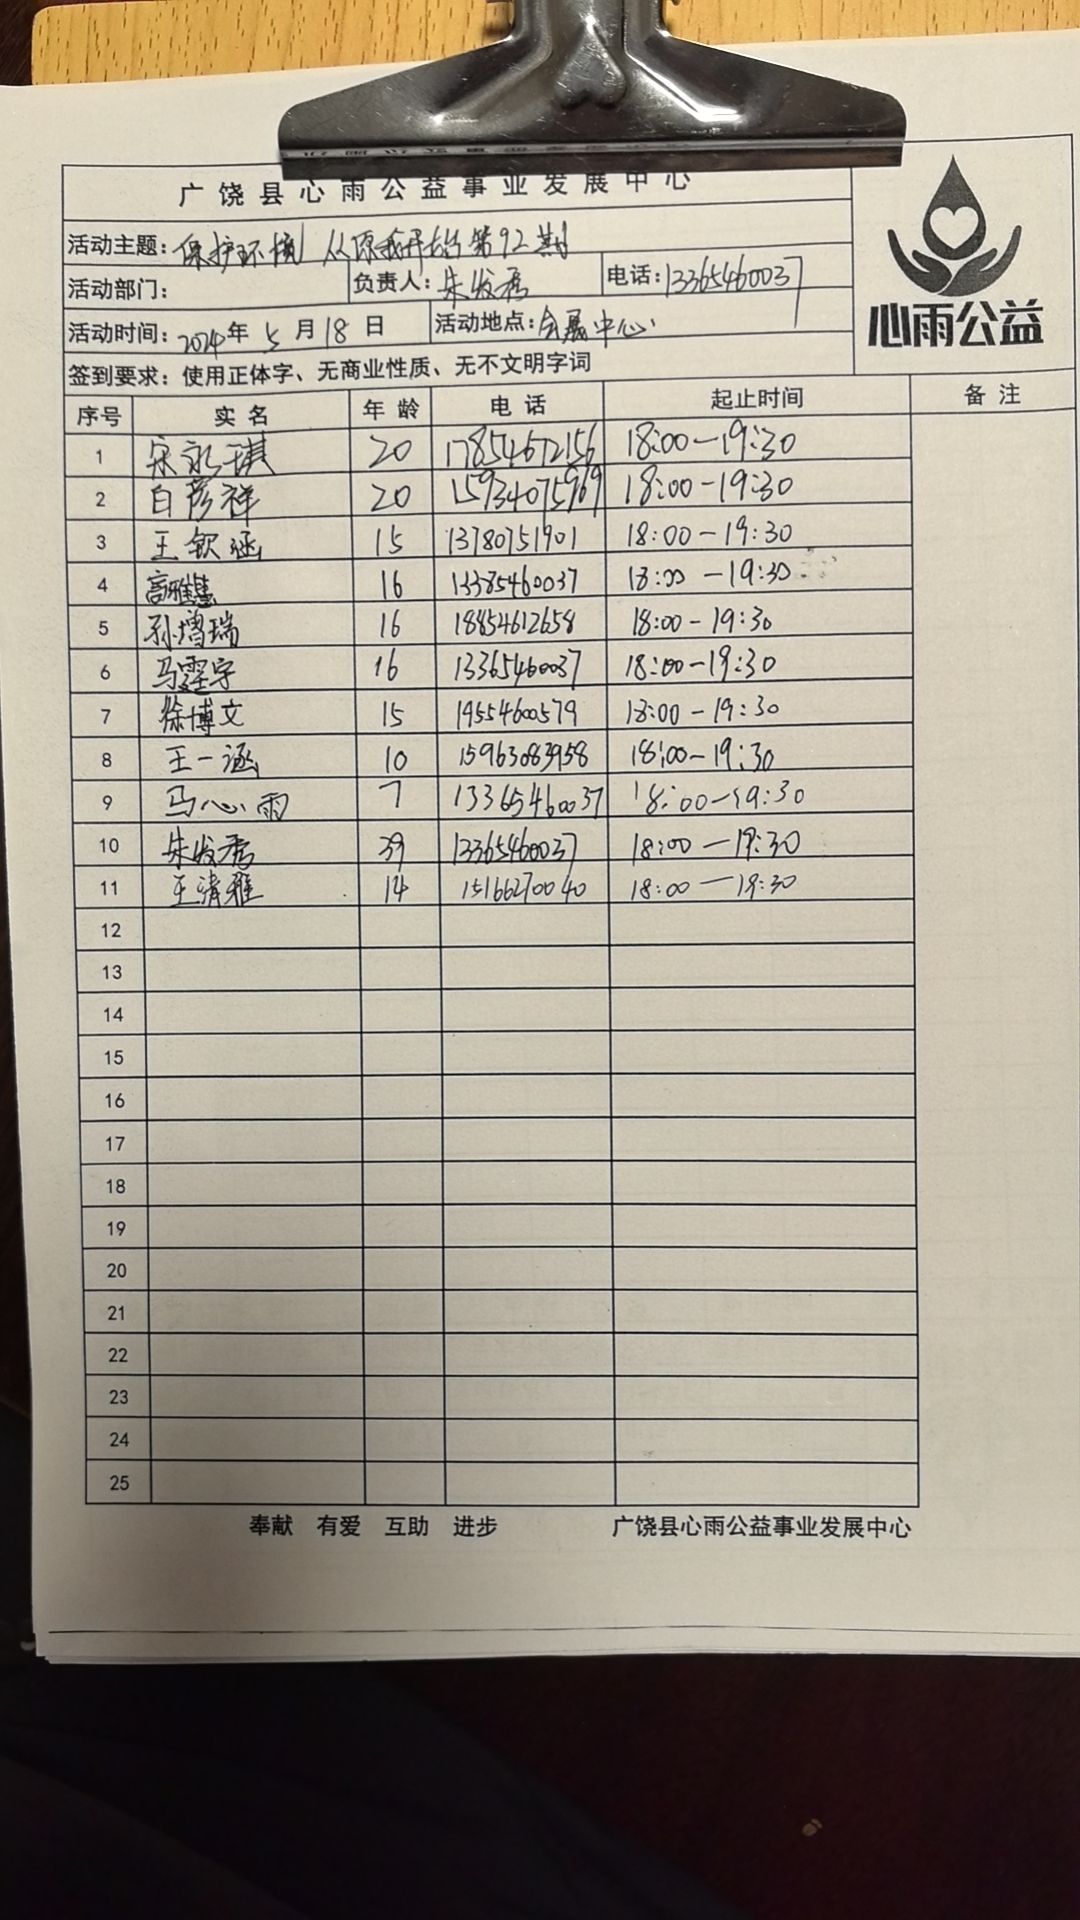 广饶县心雨公益事业发展中心
心雨公益
活动主题：保护环境 从你我开始第92期
活动部门： 负责人：朱发秀 电话：13365460037
活动时间：2024年5月18日 活动地点：会展中心
签到要求：使用正体字、无商业性质、无不文明字词
序号 实名 年龄 电话 起止时间 备注
1 宋永琪 20 17854672156 18:00-19:30
2 白彦祥 20 15934075969 18:00-19:30
3 王钦涵 15 13780751901 18:00-19:30
4 高雅慧 16 13385460037 18:00-19:30
5 孙增瑞 16 18854612658 18:00-19:30
6 马霆宇 16 13365460037 18:00-19:30
7 徐博文 15 19554600579 18:00-19:30
8 王一涵 10 15963083958 18:00-19:30
9 马心雨 7 13365460037 18:00-19:30
10 朱发秀 39 13365460037 18:00-19:30
11 王清雅 14 15166270040 18:00-19:30
12
13
14
15
16
17
18
19
20
21
22
23
24
25
奉献 有爱 互助 进步 广饶县心雨公益事业发展中心